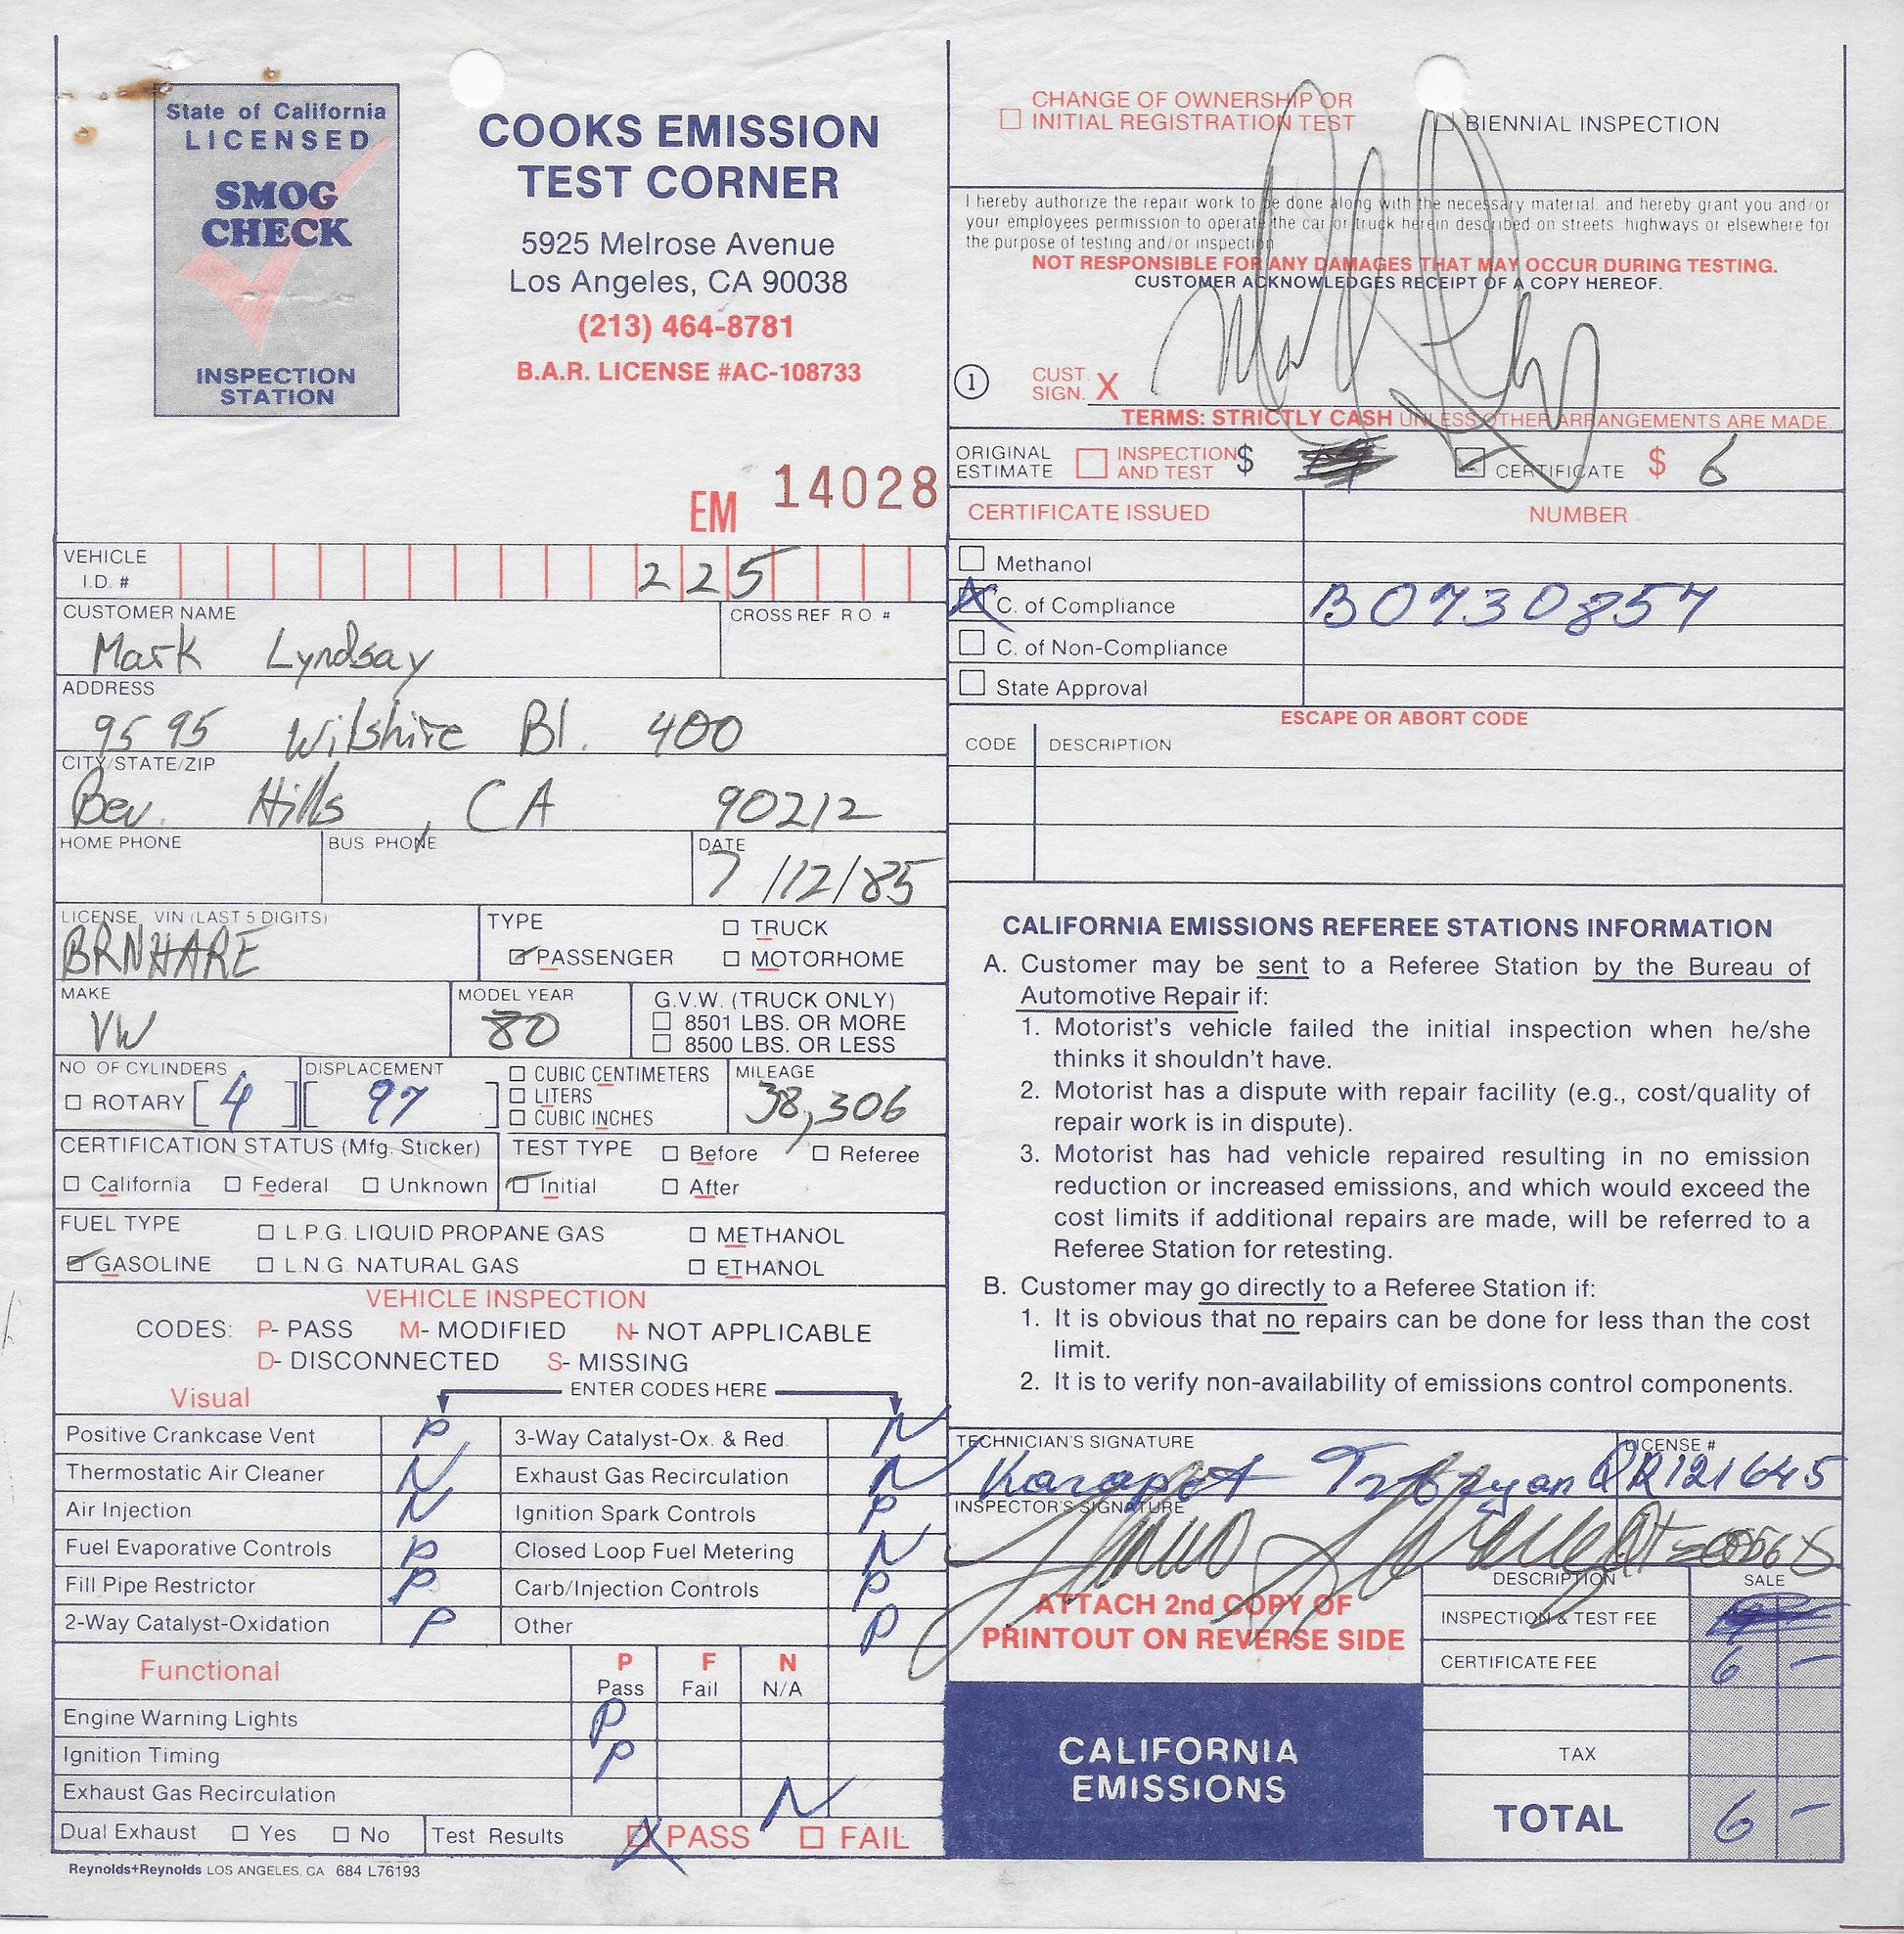 State of California
LICENSED
SMOG
CHECK
INSPECTION
STATION
COOKS EMISSION
TEST CORNER
5925 Melrose Avenue
Los Angeles, CA 90038
(213) 464-8781
B.A.R. LICENSE #AC-108733
EM 14028
VEHICLE
I.D. # 225
CUSTOMER NAME CROSS REF R O. #
Mark Lyndsay
ADDRESS
9595 Wilshire Bl. 400
CITY/STATE/ZIP
Bev. Hills, CA 90212
HOME PHONE BUS PHONE DATE
7/12/85
LICENSE, VIN (LAST 5 DIGITS)
BRNHARE
TYPE TRUCK
PASSENGER MOTORHOME
MAKE MODEL YEAR G.V.W. (TRUCK ONLY)
VW 80 8501 LBS. OR MORE
8500 LBS. OR LESS
NO OF CYLINDERS DISPLACEMENT CUBIC CENTIMETERS MILEAGE
ROTARY [4] [97] LITERS 38,306
CUBIC INCHES
CERTIFICATION STATUS (Mfg. Sticker) TEST TYPE Before Referee
California Federal Unknown Initial After
FUEL TYPE L.P.G. LIQUID PROPANE GAS METHANOL
GASOLINE L.N.G. NATURAL GAS ETHANOL
VEHICLE INSPECTION
CODES: P- PASS M- MODIFIED N- NOT APPLICABLE
D- DISCONNECTED S- MISSING
Visual ENTER CODES HERE
Positive Crankcase Vent P 3-Way Catalyst-Ox. & Red. N
Thermostatic Air Cleaner N Exhaust Gas Recirculation N
Air Injection N Ignition Spark Controls P
Fuel Evaporative Controls P Closed Loop Fuel Metering N
Fill Pipe Restrictor P Carb/Injection Controls P
2-Way Catalyst-Oxidation P Other P
Functional P F N
Pass Fail N/A
Engine Warning Lights P
Ignition Timing P
Exhaust Gas Recirculation N
Dual Exhaust Yes No Test Results X PASS FAIL
Reynolds+Reynolds LOS ANGELES, CA 684 L76193
CHANGE OF OWNERSHIP OR
INITIAL REGISTRATION TEST BIENNIAL INSPECTION
I hereby authorize the repair work to be done along with the necessary material, and hereby grant you and/or
your employees permission to operate the car or truck herein described on streets, highways or elsewhere for
the purpose of testing and/or inspection
NOT RESPONSIBLE FOR ANY DAMAGES THAT MAY OCCUR DURING TESTING.
CUSTOMER ACKNOWLEDGES RECEIPT OF A COPY HEREOF.
1 CUST.
SIGN. X
TERMS: STRICTLY CASH UNLESS OTHER ARRANGEMENTS ARE MADE.
ORIGINAL
ESTIMATE INSPECTION
AND TEST $ CERTIFICATE $ 6
CERTIFICATE ISSUED NUMBER
Methanol
X C. of Compliance B0730857
C. of Non-Compliance
State Approval
ESCAPE OR ABORT CODE
CODE DESCRIPTION
CALIFORNIA EMISSIONS REFEREE STATIONS INFORMATION
A. Customer may be sent to a Referee Station by the Bureau of
Automotive Repair if:
1. Motorist's vehicle failed the initial inspection when he/she
thinks it shouldn't have.
2. Motorist has a dispute with repair facility (e.g., cost/quality of
repair work is in dispute).
3. Motorist has had vehicle repaired resulting in no emission
reduction or increased emissions, and which would exceed the
cost limits if additional repairs are made, will be referred to a
Referee Station for retesting.
B. Customer may go directly to a Referee Station if:
1. It is obvious that no repairs can be done for less than the cost
limit.
2. It is to verify non-availability of emissions control components.
TECHNICIAN'S SIGNATURE LICENSE #
Karapet
INSPECTOR'S SIGNATURE
ATTACH 2nd COPY OF
PRINTOUT ON REVERSE SIDE
DESCRIPTION SALE
INSPECTION & TEST FEE
CERTIFICATE FEE 6 –
TAX
TOTAL 6 –
CALIFORNIA
EMISSIONS